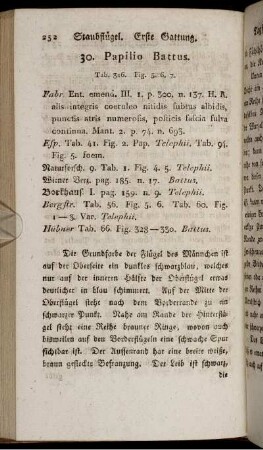 252 Staubflügel. Erste Gattung.
30. Papilio Battus.
Tab. 316. Fig. 5. 6. 7.
Fabr. Ent. emend. III. 1. p. 300. n. 137. H. R.
alis integris coeruleo nitidis subtus albidis,
punctis atris numerosis, posticis fascia fulva
continua. Mant. 2. p. 74. n. 693.
Esp. Tab. 41. Fig. 2. Pap. Telephii. Tab. 94.
Fig. 5. foem.
Naturforsch. 9. Tab. 1. Fig. 4. 5. Telephii.
Wiener Verz. pag. 185. n. 17. Battus.
Borkhaus. I. pag. 159. n. 9. Telephii.
Bergstr. Tab. 56. Fig. 5. 6. Tab. 60. Fig.
1 — 3. Var. Telephii.
Hübner Tab. 66. Fig. 328 — 330. Battus.
Die Grundfarbe der Flügel des Männchen ist
auf der Oberseite ein dunkles schwarzblau, welches
nur auf der inneren Hälfte der Oberflügel etwas
deutlicher in blau schimmert. Auf der Mitte der
Oberflügel steht nach dem Vorderrande zu ein
schwarzer Punkt. Nahe am Rande der Hinterflü-
gel steht eine Reihe brauner Ringe, wovon auch
bisweilen auf den Vorderflügeln eine schwache Spur
sichtbar ist. Der Aussenrand hat eine breite weiße,
braun gefleckte Befranzung. Der Leib ist schwarz,
die